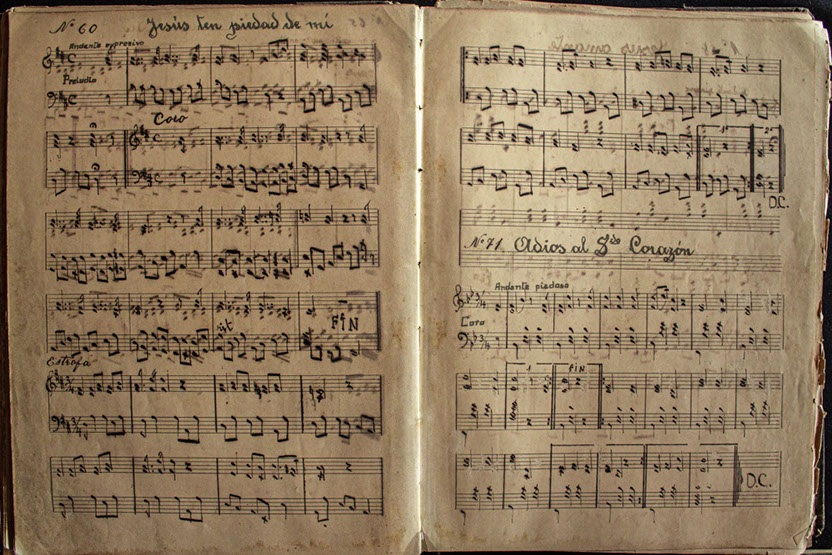 Nº 60 Jesús ten piedad de mí
Andante expresivo
Preludio
Coro
FÍN
Estrofa
1ª 2ª
D.C.
Nº 71 Adios al Sdo Corazón
Andante piadoso
Coro
1 FIN
D.C.